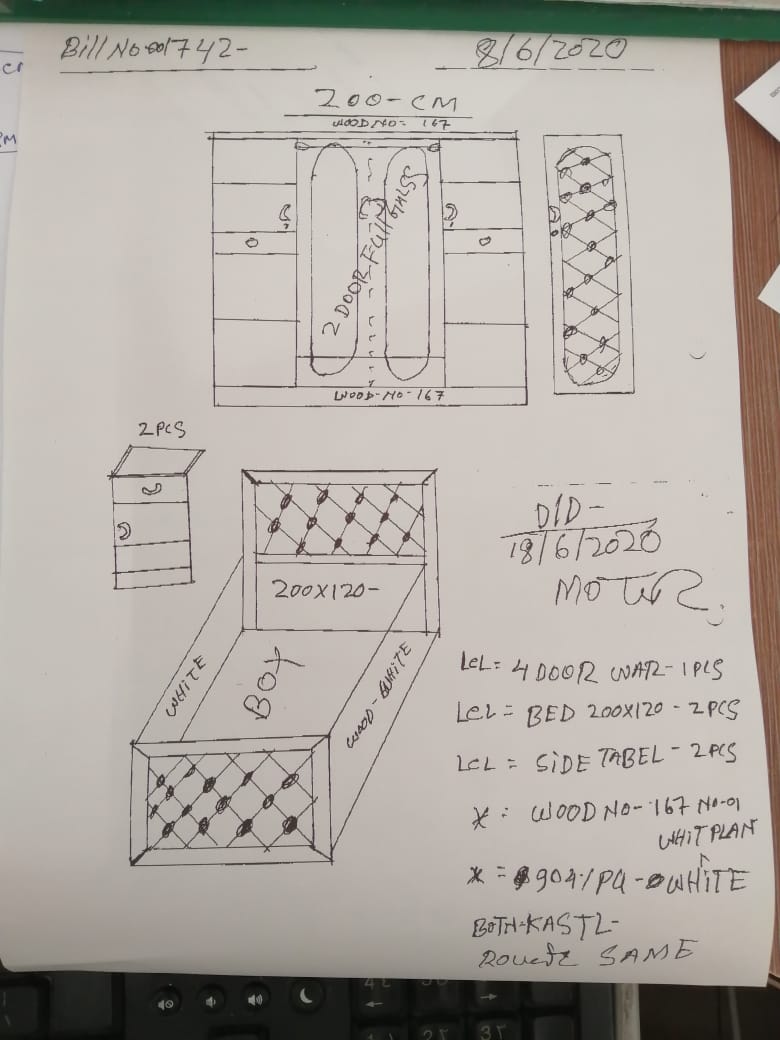 Bill No 001742-
8/6/2020
200-CM
WOOD NO= 167
2 DOOR FULL
WOOD-NO-167
2PCS
200X120-
WHITE
BOX
WOOD-WHITE
D/D-
18/6/2020
LCL= 4 DOOR WAR-1PCS
LCL= BED 200X120-2PCS
LCL= SIDE TABEL-2PCS
*= WOOD NO-167 NO-01
WHIT PLAN
*= 904/PU-WHITE
BOTH-KASTL-
SAME